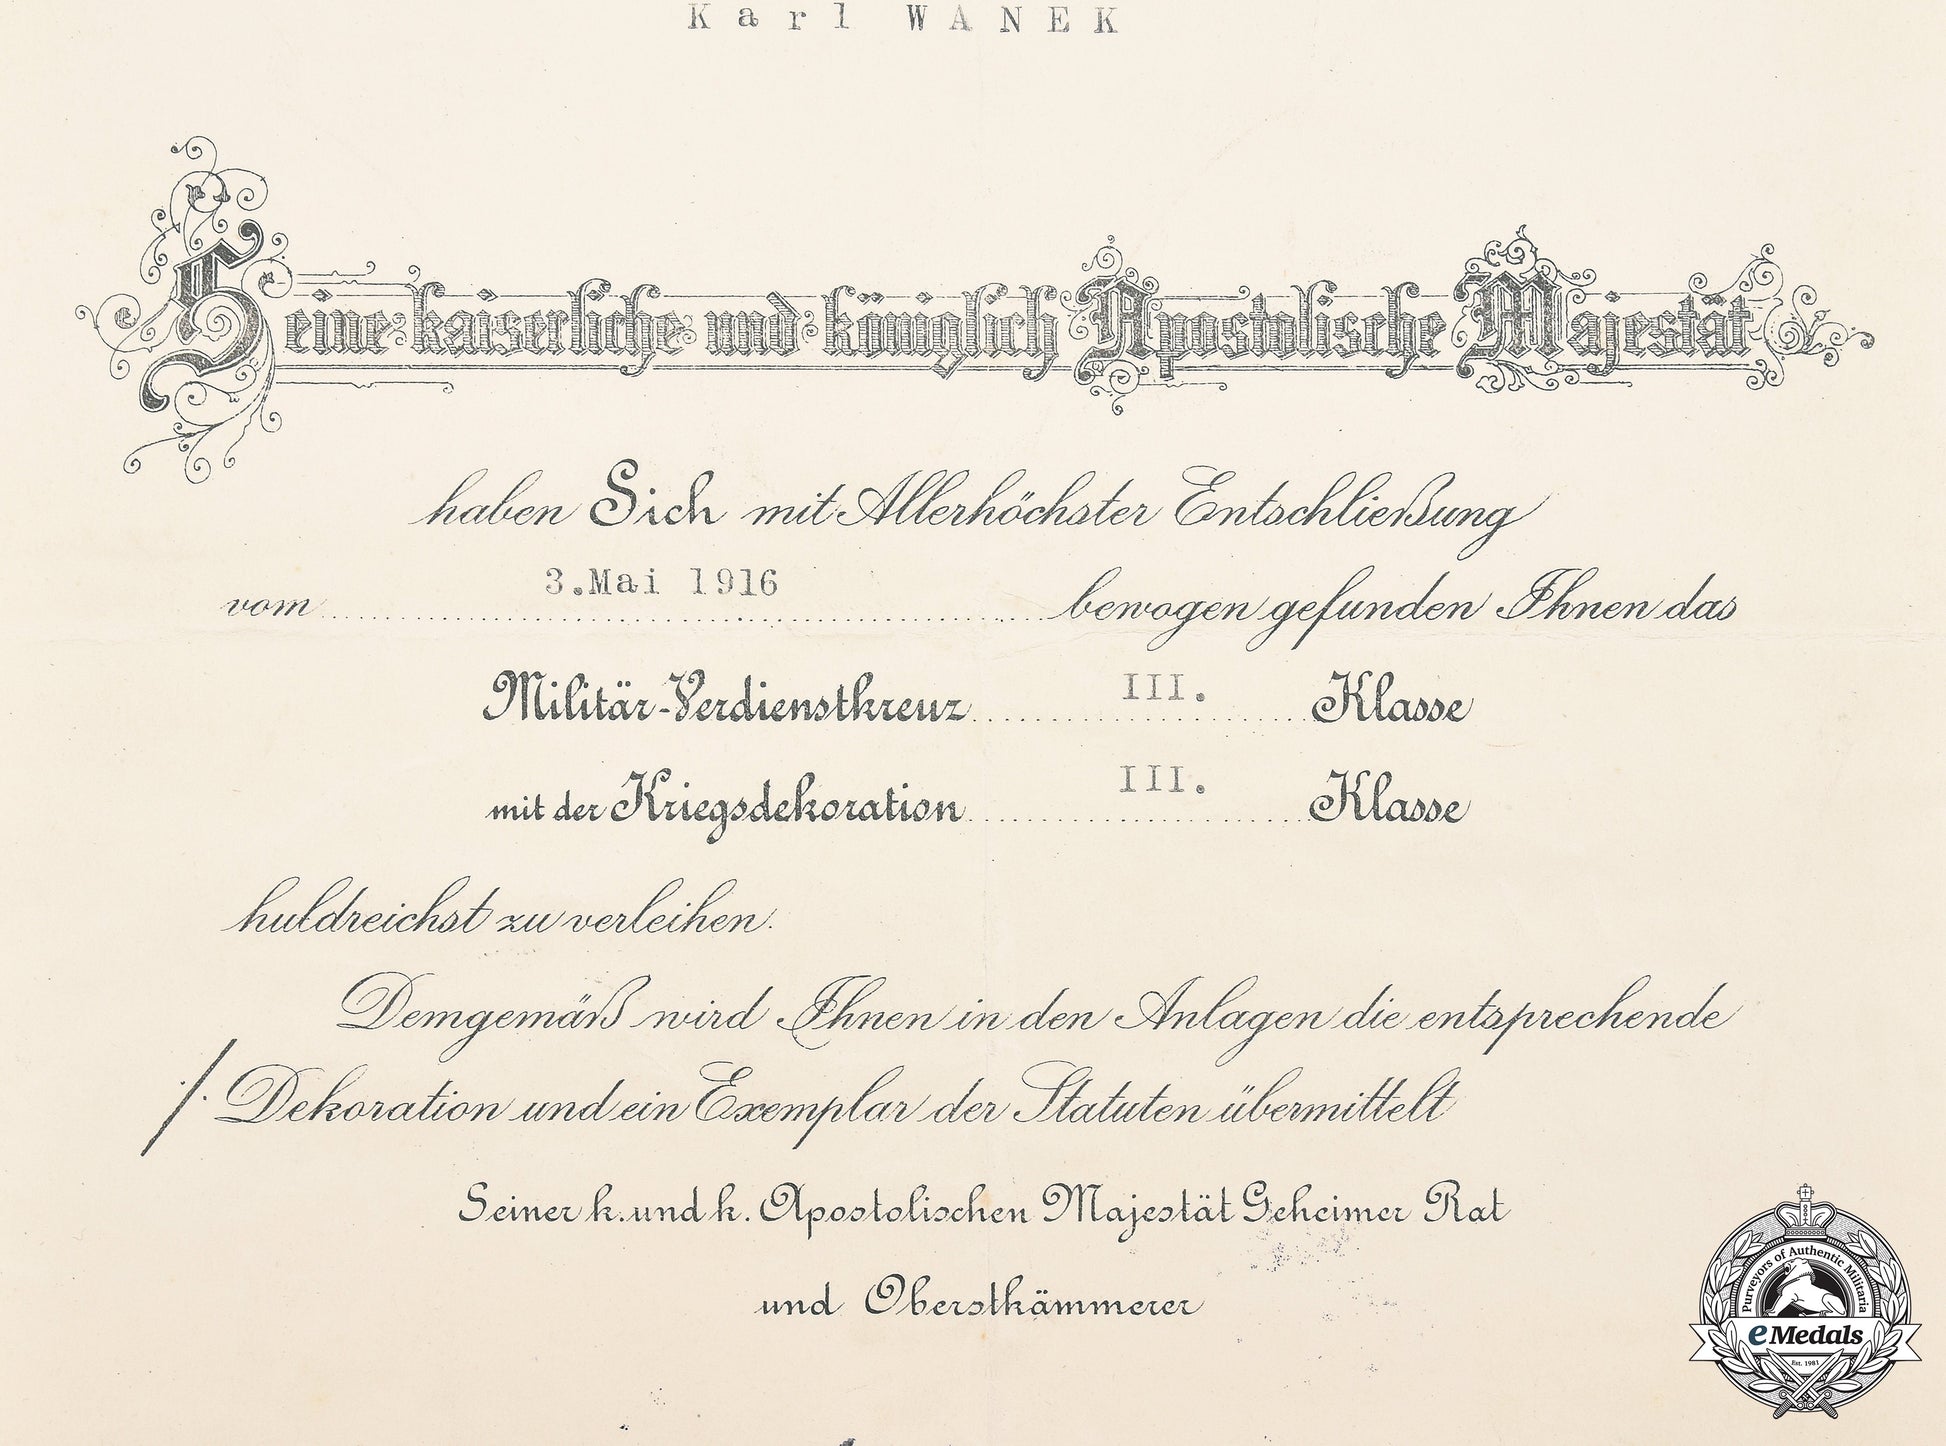 Karl WANEK
Seine kaiserliche und königlich Apostolische Majestät
haben Sich mit Allerhöchster Entschließung
vom 3.Mai 1916 bewogen gefunden Ihnen das
Militär-Verdienstkreuz III. Klasse
mit der Kriegsdekoration III. Klasse
huldreichst zu verleihen.
Demgemäß wird Ihnen in den Anlagen die entsprechende
/. Dekoration und ein Exemplar der Statuten übermittelt
Seiner k. und k. Apostolischen Majestät Geheimer Rat
und Oberstkämmerer
Purveyors of Authentic Militaria
eMedals
Est. 1983